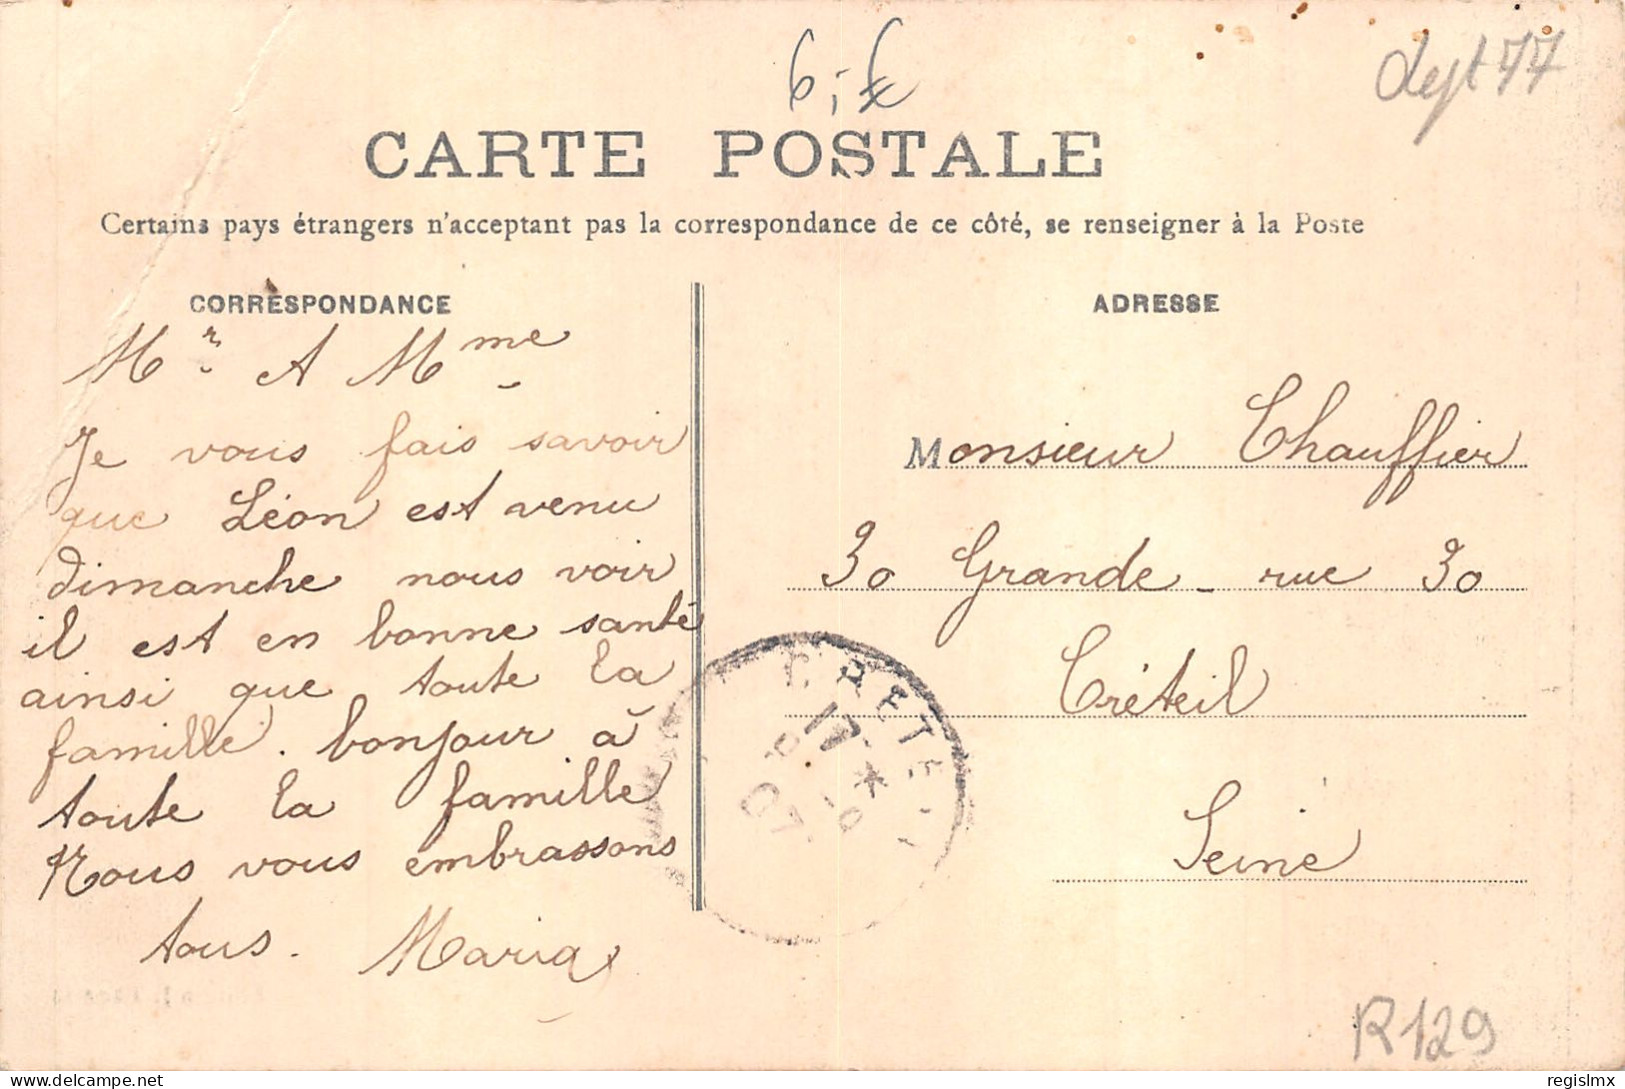 6,€
dept 77
CARTE POSTALE
Certains pays étrangers n'acceptant pas la correspondance de ce côté, se renseigner à la Poste
CORRESPONDANCE
Mr A Mme
Je vous fais savoir
que Léon est venu
dimanche nous voir
il est en bonne santé
ainsi que toute la
famille. bonjour à
toute la famille
Nous vous embrassons
tous. Maria
ADRESSE
Monsieur Chauffier
30 Grande-rue 30
Créteil
Seine
CRETE
17
07
R129
regislmx